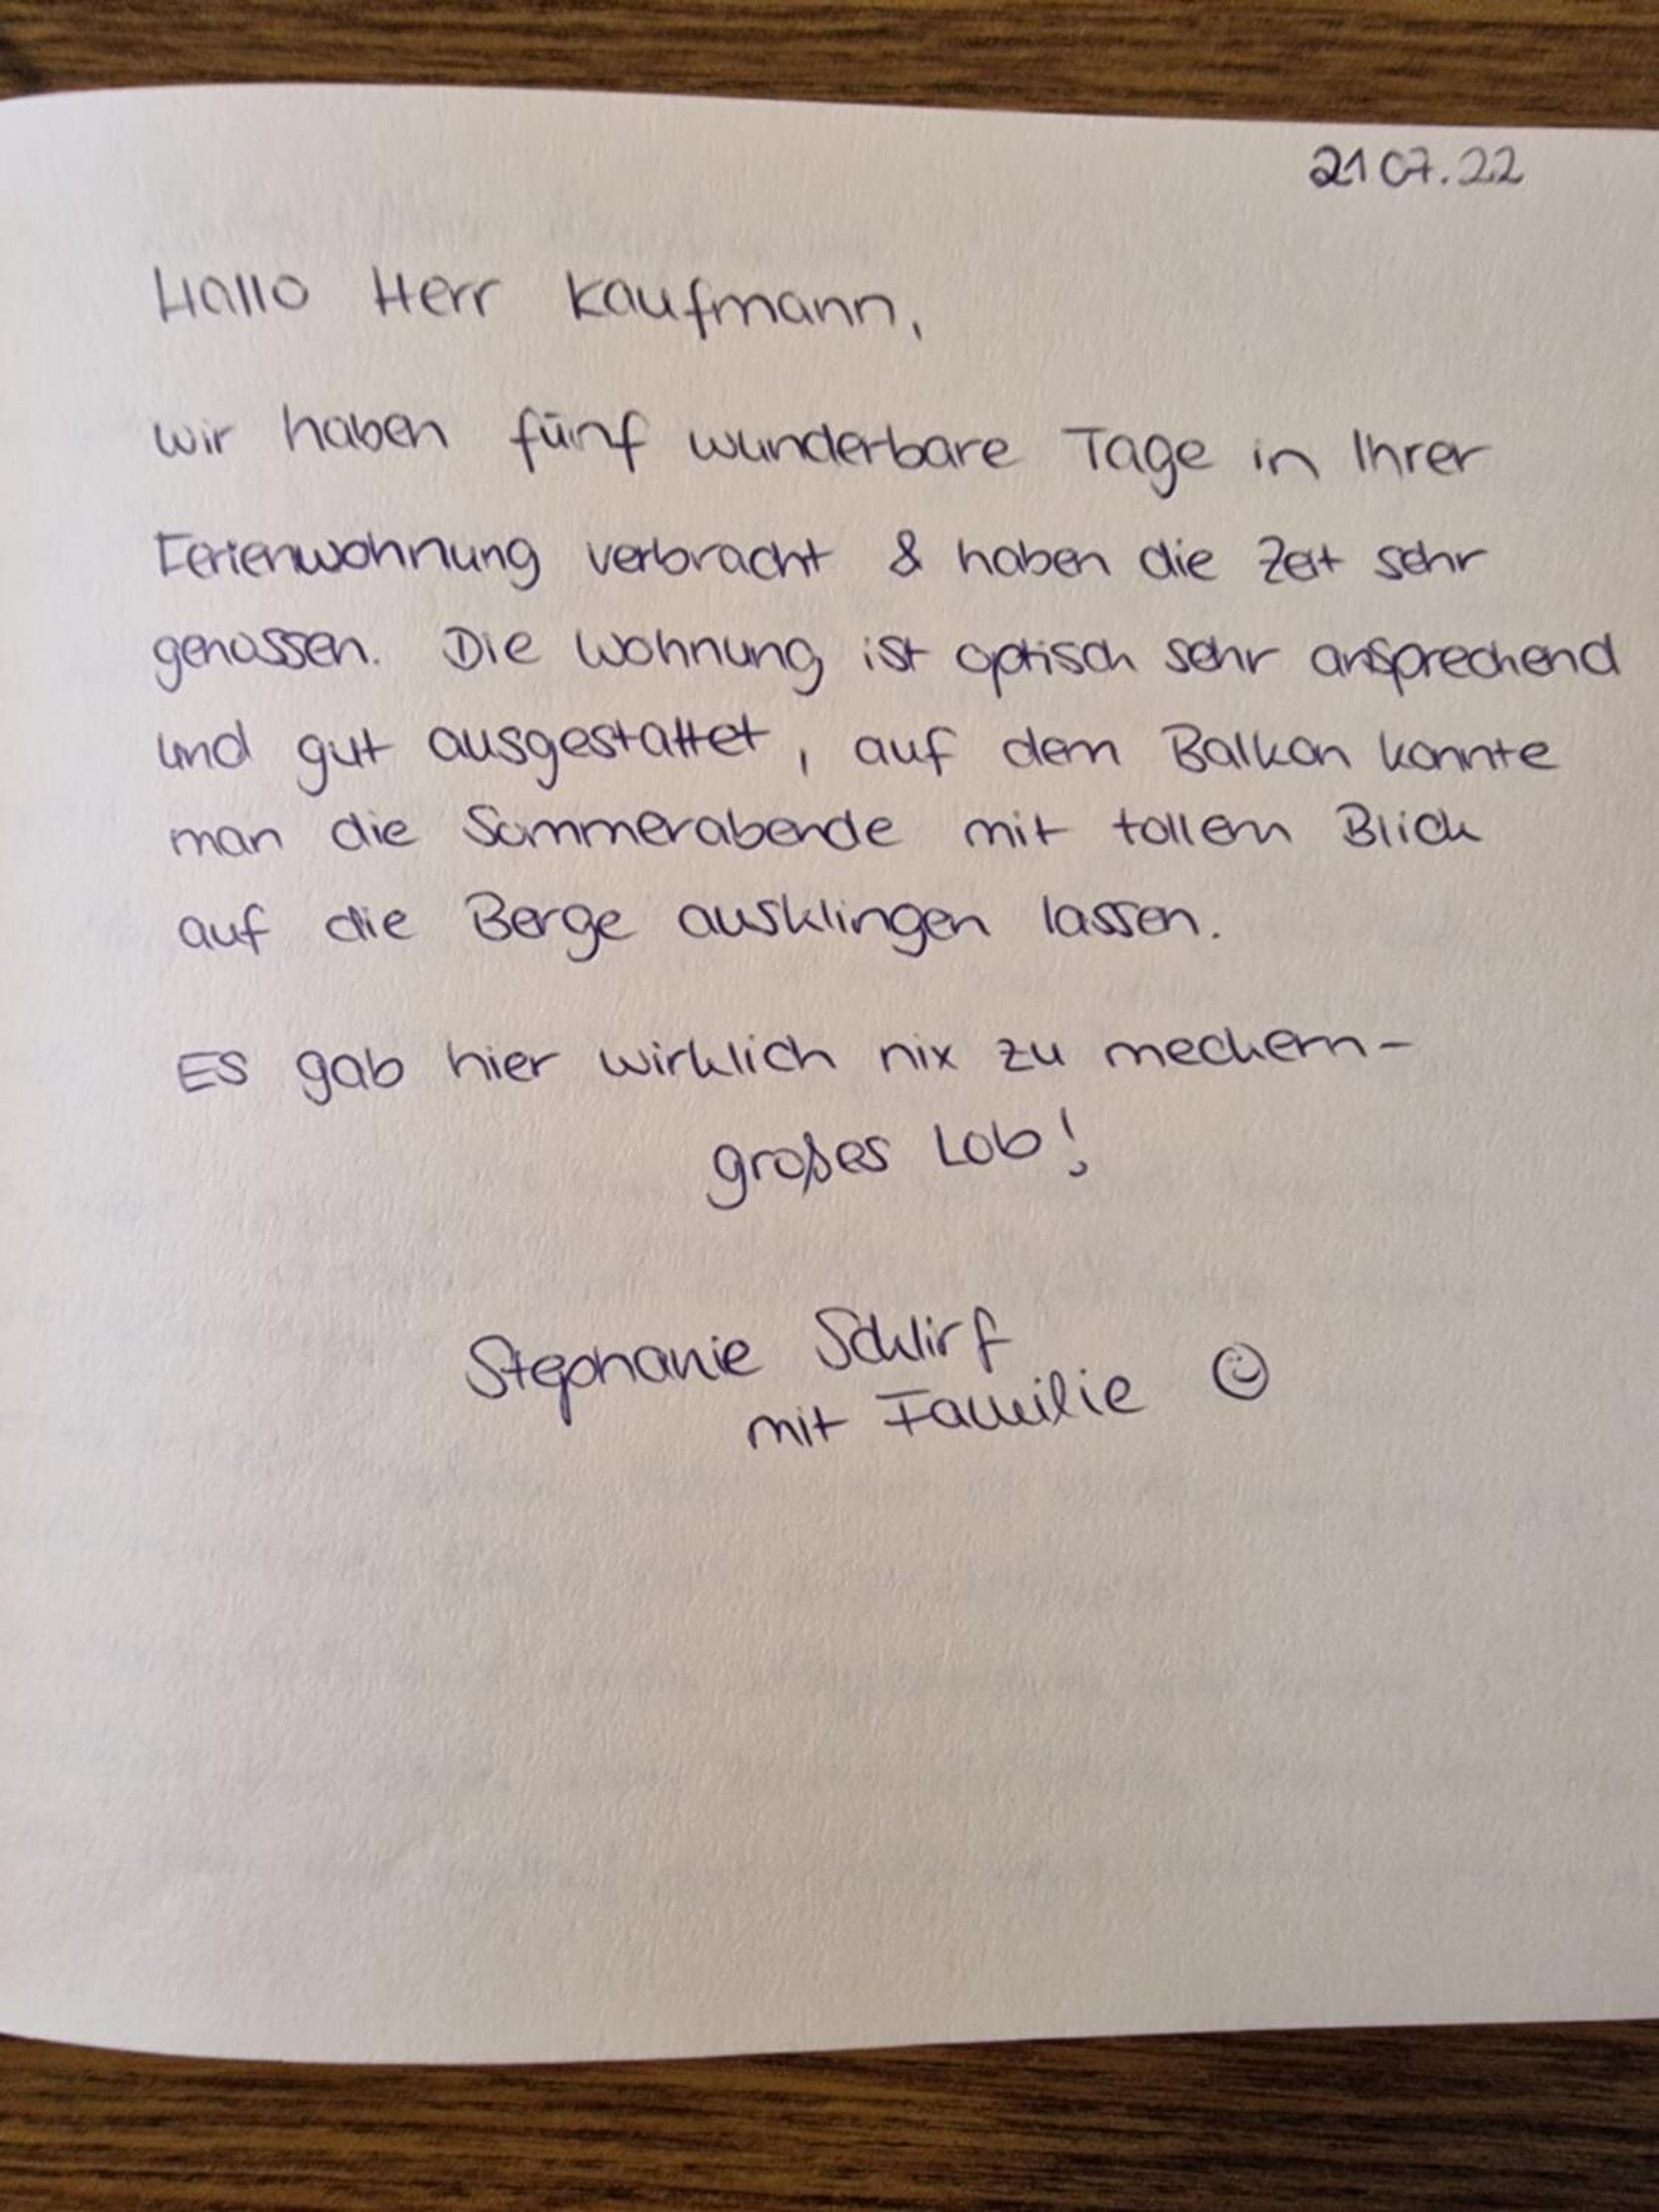 21 07.22
Hallo Herr Kaufmann,
wir haben fünf wunderbare Tage in Ihrer
Ferienwohnung verbracht & haben die Zeit sehr
genossen. Die Wohnung ist optisch sehr ansprechend
und gut ausgestattet, auf dem Balkon konnte
man die Sommerabende mit tollem Blick
auf die Berge ausklingen lassen.
Es gab hier wirklich nix zu meckern-
großes Lob!
Stephanie Schlirf
mit Familie ☺